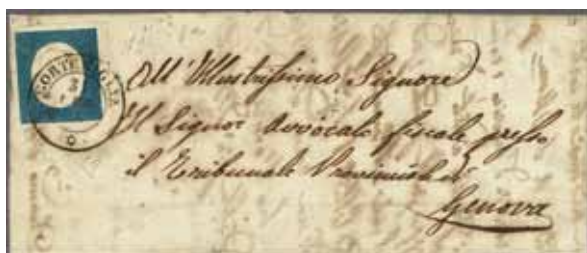 All' Illustrissimo Signore
Il Signor Avvocato fiscale presso
il Tribunale Provinciale di
Genova